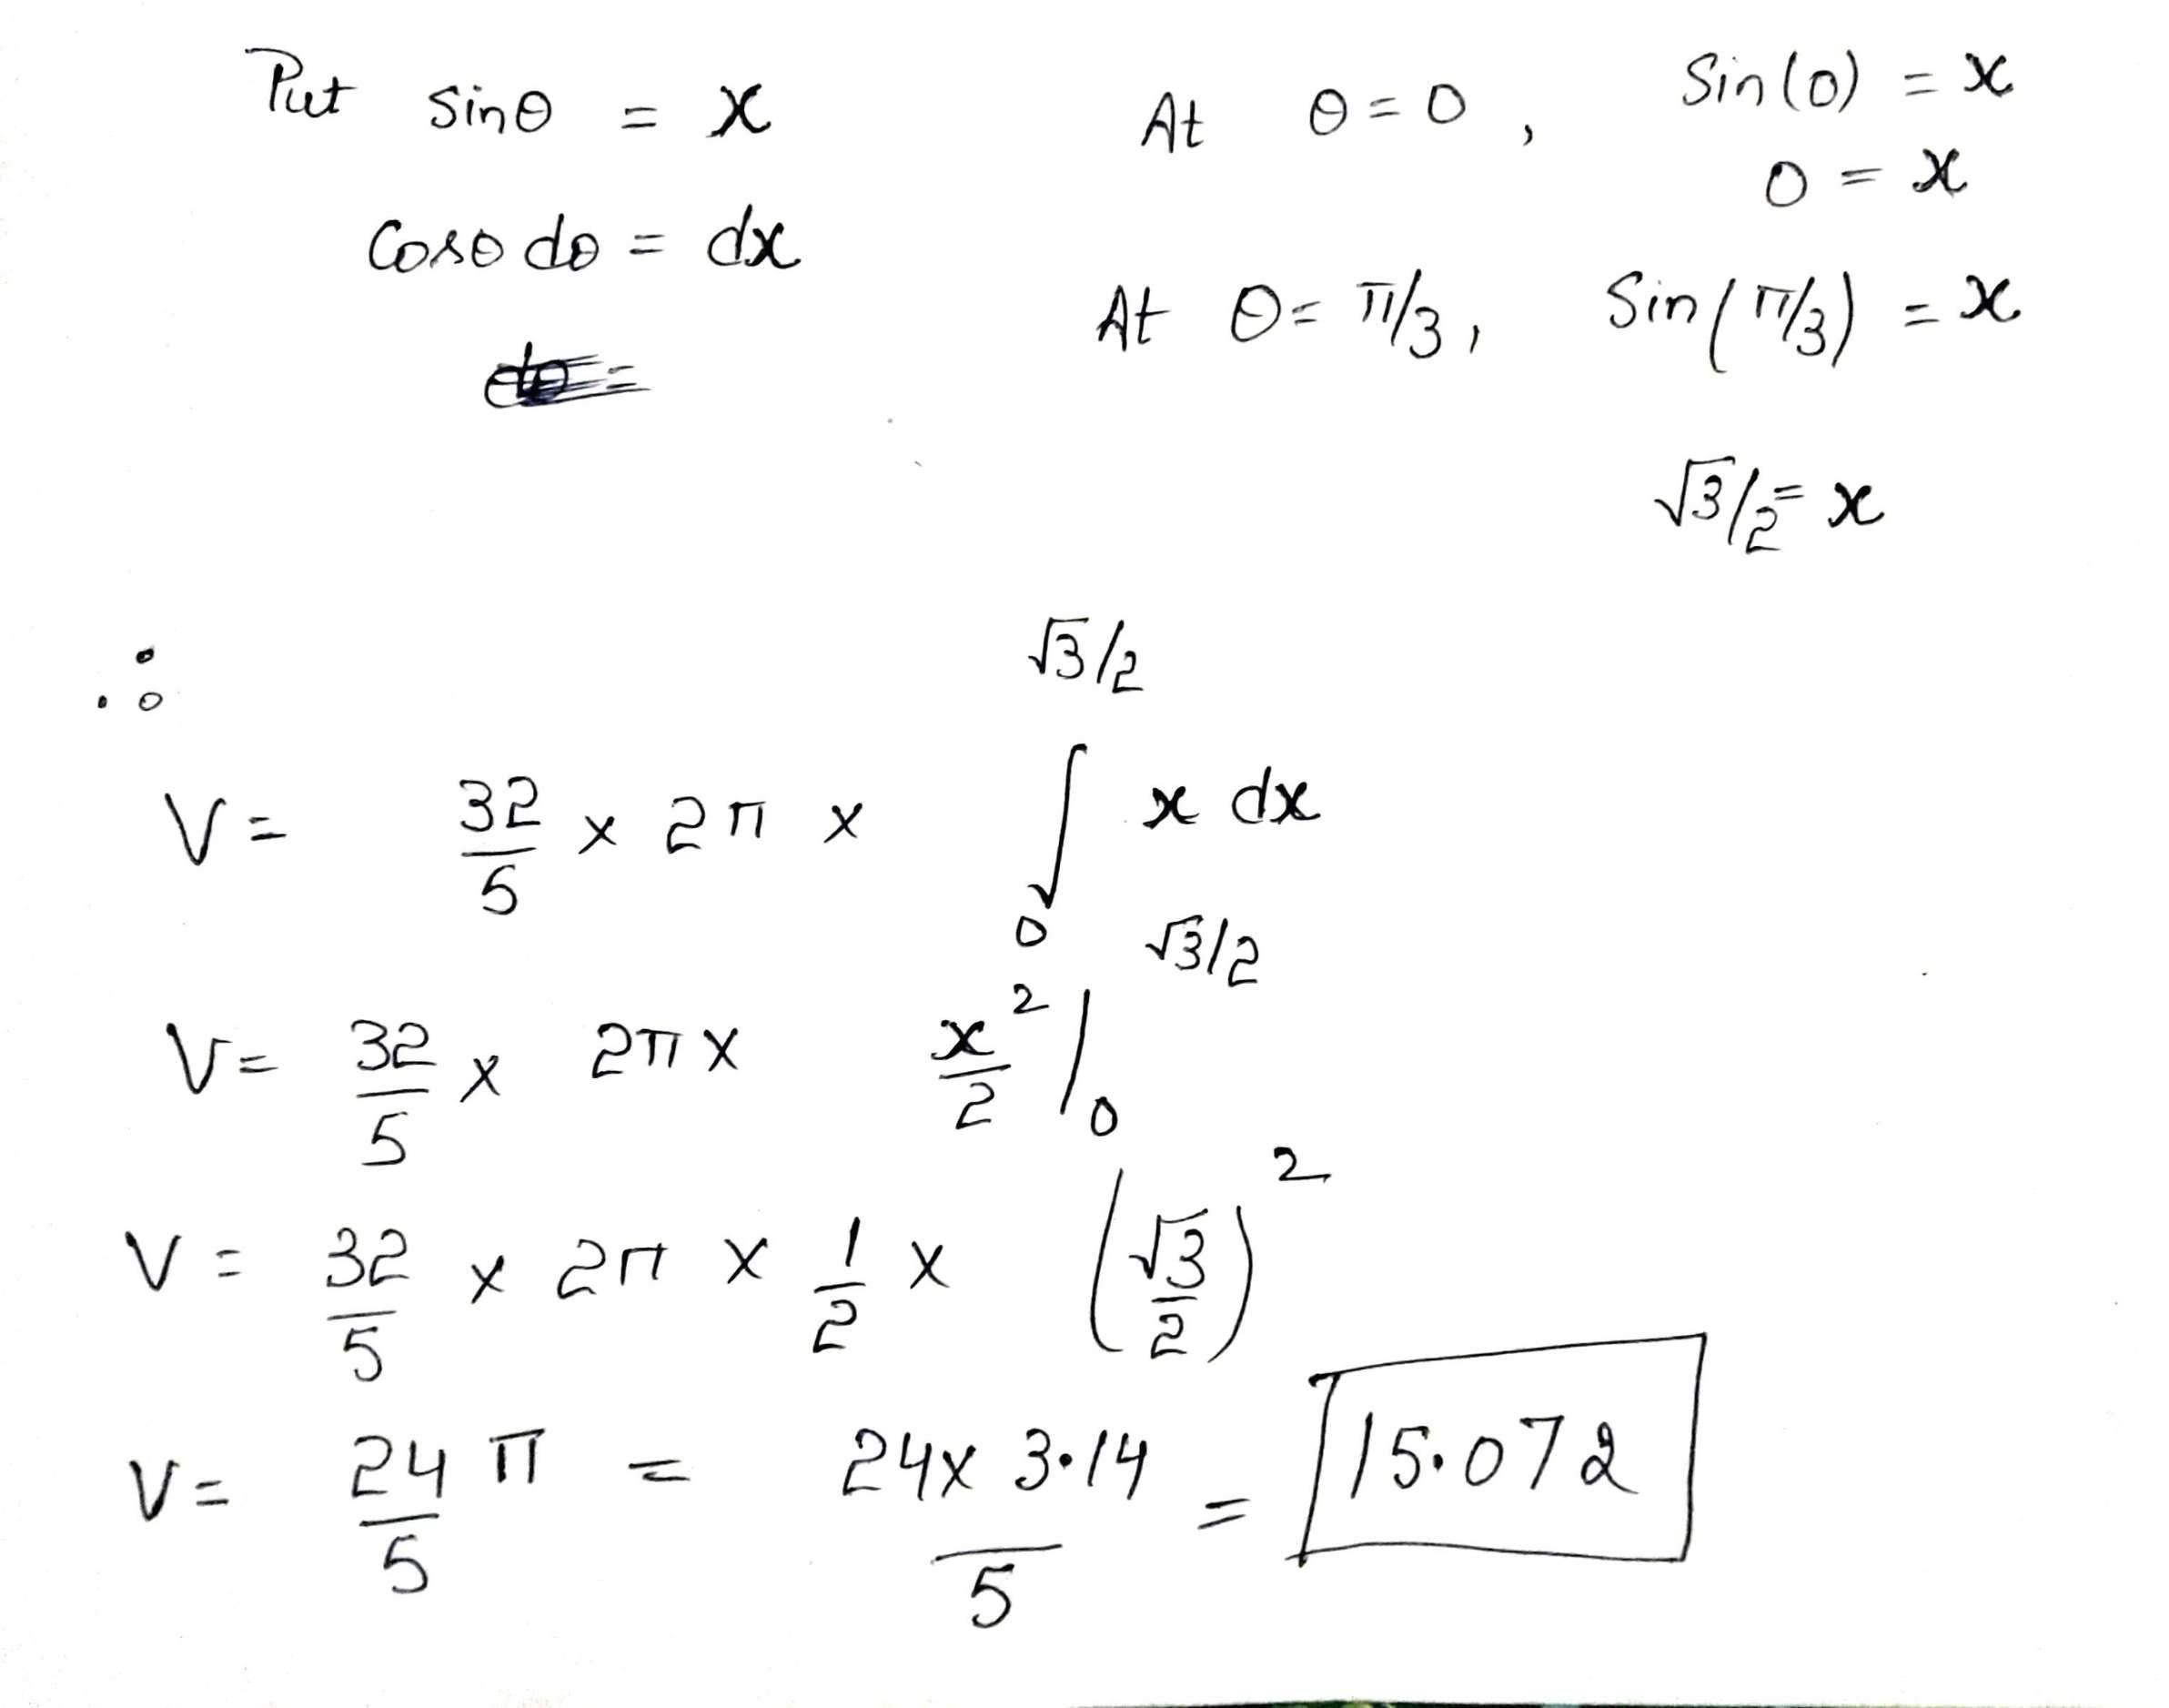 Put sinθ = x
Cosθ dθ = dx
At θ = 0 , Sin(0) = x
0 = x
At θ = π/3 , Sin(π/3) = x
√3/2 = x
∴
V = 32/5 × 2π × ∫₀^(√3/2) x dx
V = 32/5 × 2π × x²/2 |₀^(√3/2)
V = 32/5 × 2π × 1/2 × (√3/2)²
V = 24/5 π = 24 × 3.14 / 5 = 15.072